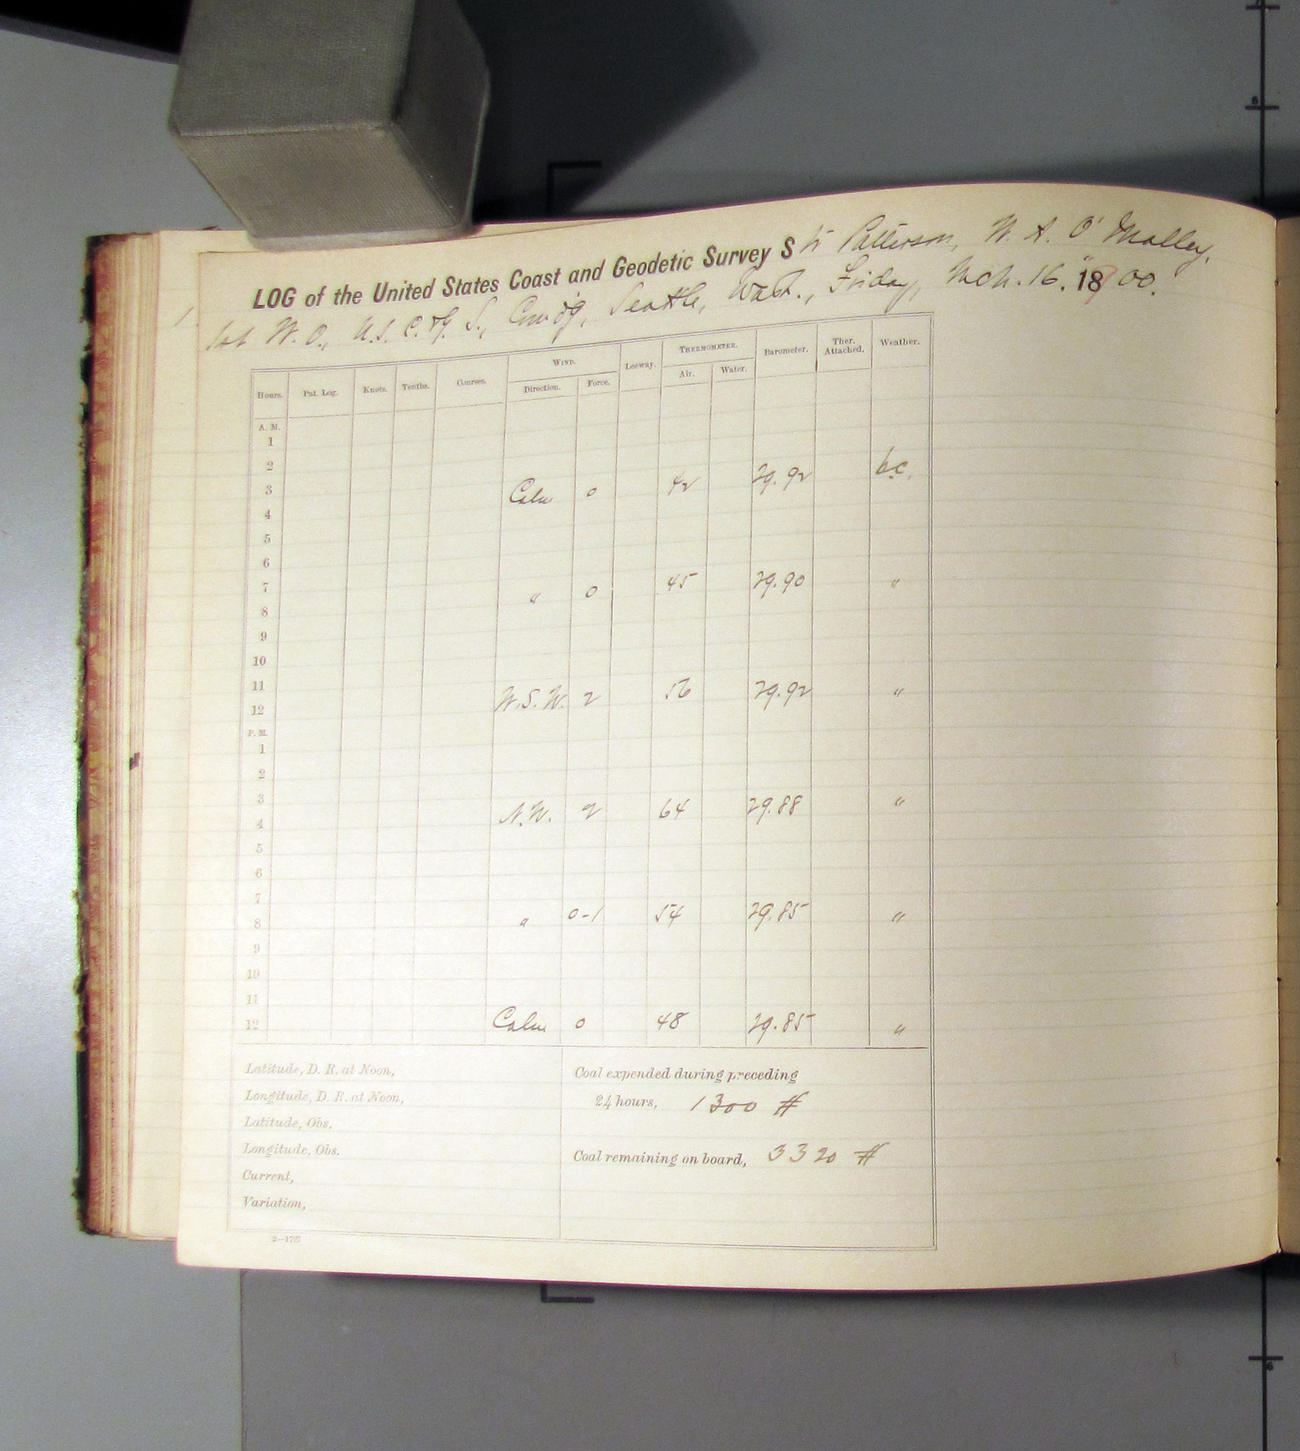 LOG of the United States Coast and Geodetic Survey Str Patterson, W. A. O'Malley,
1st W. O., U.S. C. & G. S., Com'd'g, Seattle, Wash., Friday, Mch. 16. 1800.
Hours. Pat. Log. Knots. Tenths. Courses. WIND. Leeway. THERMOMETER. Barometer. Ther. Attached. Weather.
Direction. Force. Air. Water.
A. M.
1
2
3 Calm 0 42 29.92 bc.
4
5
6
7 " 0 45 29.90 "
8
9
10
11 W.S.W. 2 56 29.92 "
12
P. M.
1
2
3 N.W. 2 64 29.88 "
4
5
6
7
8 " 0-1 54 29.85 "
9
10
11
12 Calm 0 48 29.85 "
Latitude, D. R. at Noon,
Longitude, D. R. at Noon,
Latitude, Obs.
Longitude, Obs.
Current,
Variation,
Coal expended during preceding
24 hours, 1300 #
Coal remaining on board, 3320 #